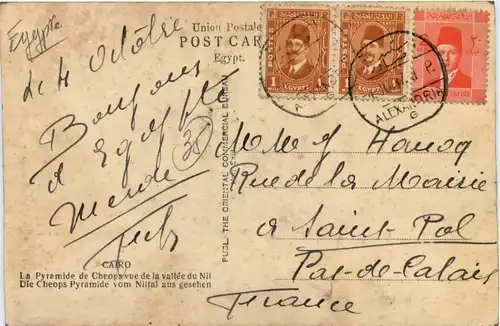 Egypte
Union Postale
POST CAR
Egypt.
Le 4 Octobre
Bonjour
d'Egypte
38
CAIRO
La Pyramide de Cheops vue de la vallée du Nil
Die Cheops Pyramide vom Niltal aus gesehen
PUBL. THE ORIENTAL COMMERCIAL BUREAU
1
1
EGYPTE
EGYPTE
ALEXANDRIA
6
M M
Rue de la Mairie
à Saint-Pol
Pas-de-Calais
France